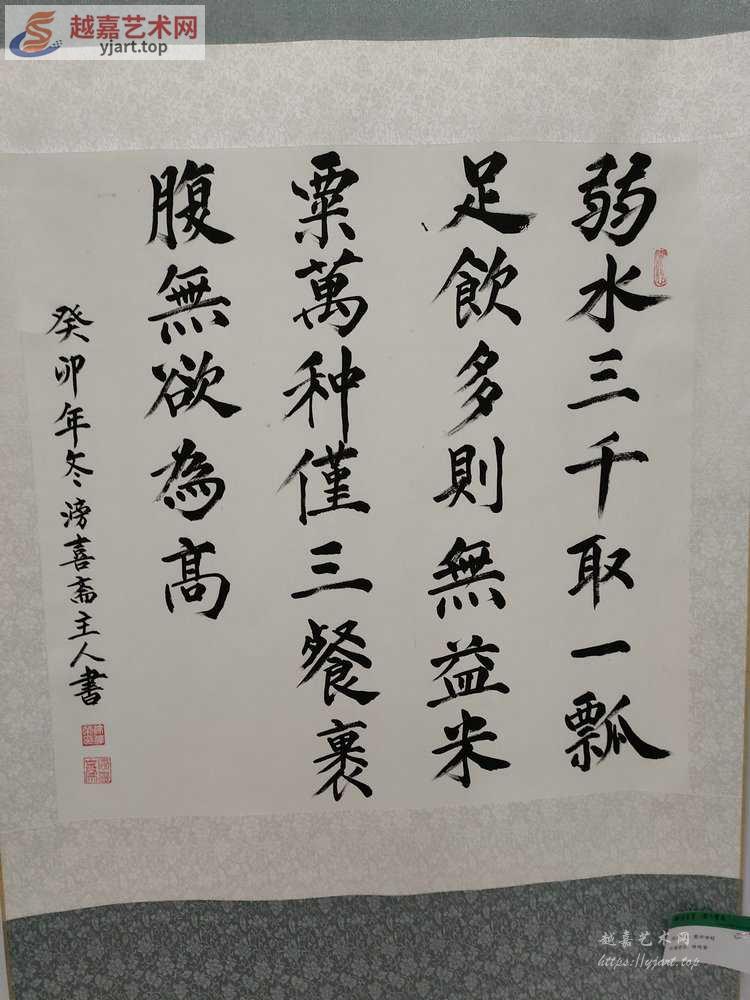 越嘉艺术网
yjart.top
弱水三千取一瓢
足飲多則無益米
粟萬种僅三餐裹
腹無欲為高
癸卯年冬滂喜斋主人書
越嘉艺术网
https://yjart.top